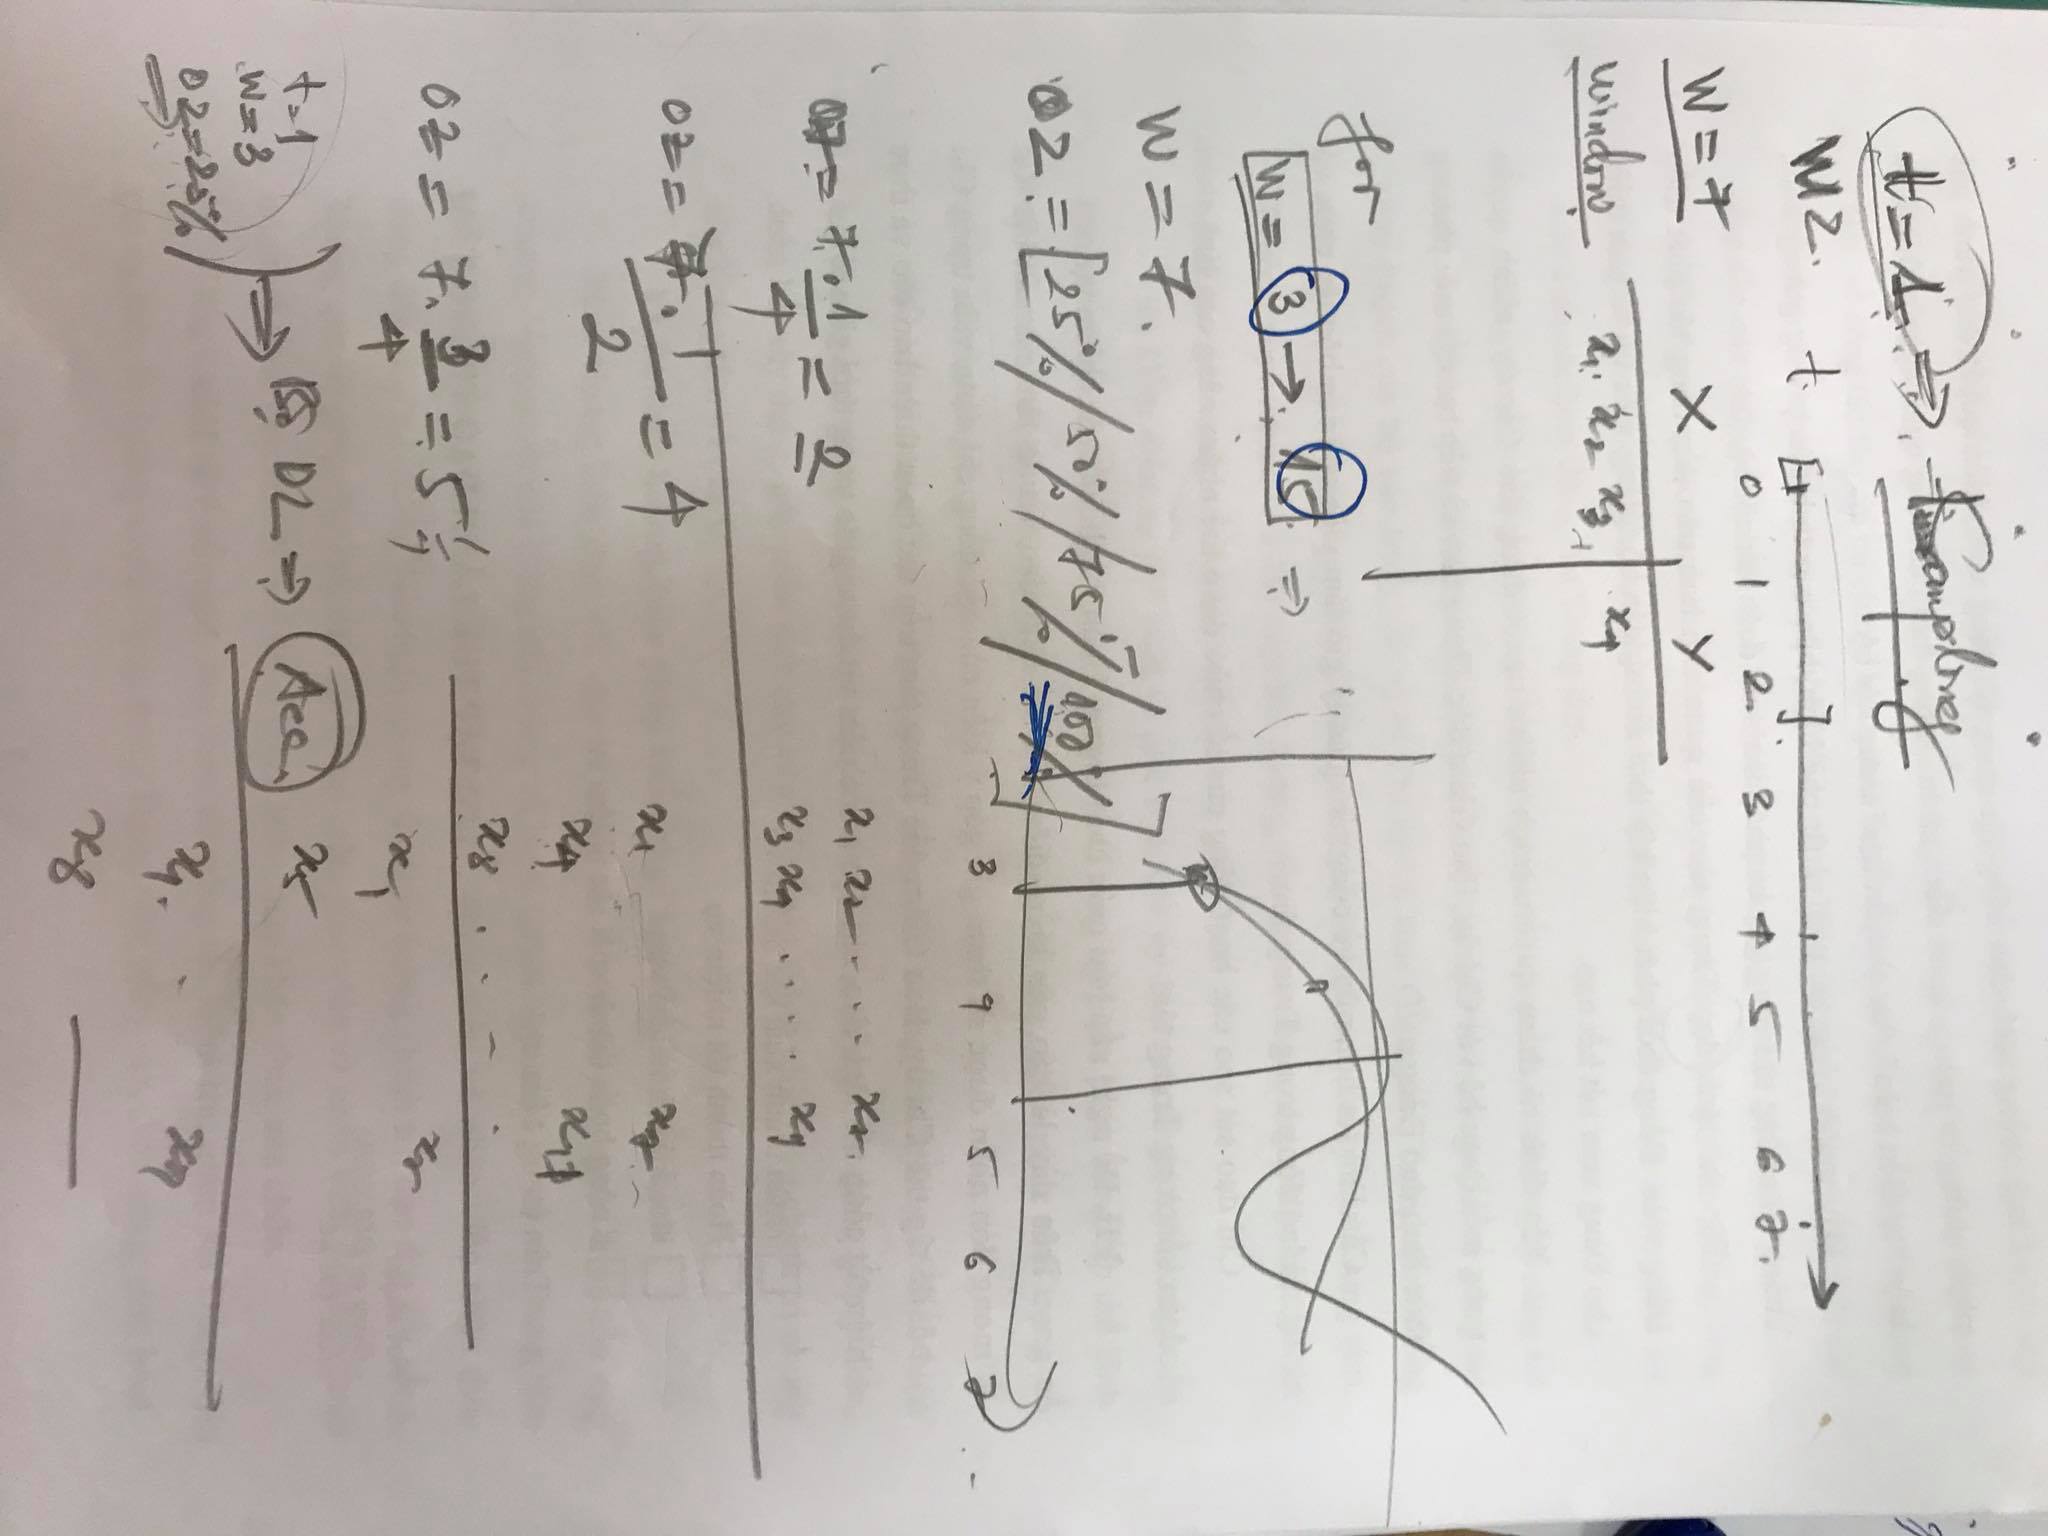 t = 1 ⇒ Sampling
WZ. t [ ]
0 1 2 3 4 5 6 7.
W = 7 X Y
window x1 x2 x3 x4
for
W = 3 → 15 ⇒
W = 7.
OZ = [25% / 50% / 75% / 100%]
3 4 5 6 7
OZ = 7 . 1/4 = 2
x1 x2 .... x7
x3 x4 .... x9
OZ = 7 . 1/2 = 4
x1 x7
x4 x11
x8 . . - .
OZ = 7 . 3/4 = 5 1/4
x1 x7
x5
t=1
W=3
OZ=25%
⇒ Bộ DL ⇒ Acc.
x1 . x7
x8